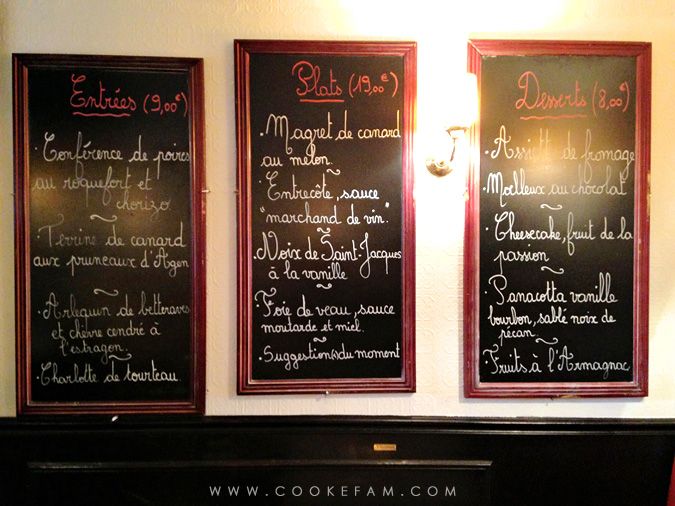 Entrées (9,00€)
• Conférence de poires
au roquefort et
chorizo
• Terrine de canard
aux pruneaux d'Agen
• Arlequin de betteraves
et chèvre cendré à
l'estragon
• Charlotte de tourteau.
Plats (19,00€)
• Magret de canard
au melon.
• Entrecôte, sauce
"marchand de vin".
• Noix de Saint-Jacques
à la vanille
• Foie de veau, sauce
moutarde et miel.
• Suggestion(s) du moment
Desserts (8,00€)
• Assiette de fromage
• Moelleux au chocolat
• Cheesecake, fruit de la
passion
• Panacotta vanille
bourbon, sablé noix de
pécan
• Fruits à l'Armagnac
WWW.COOKEFAM.COM